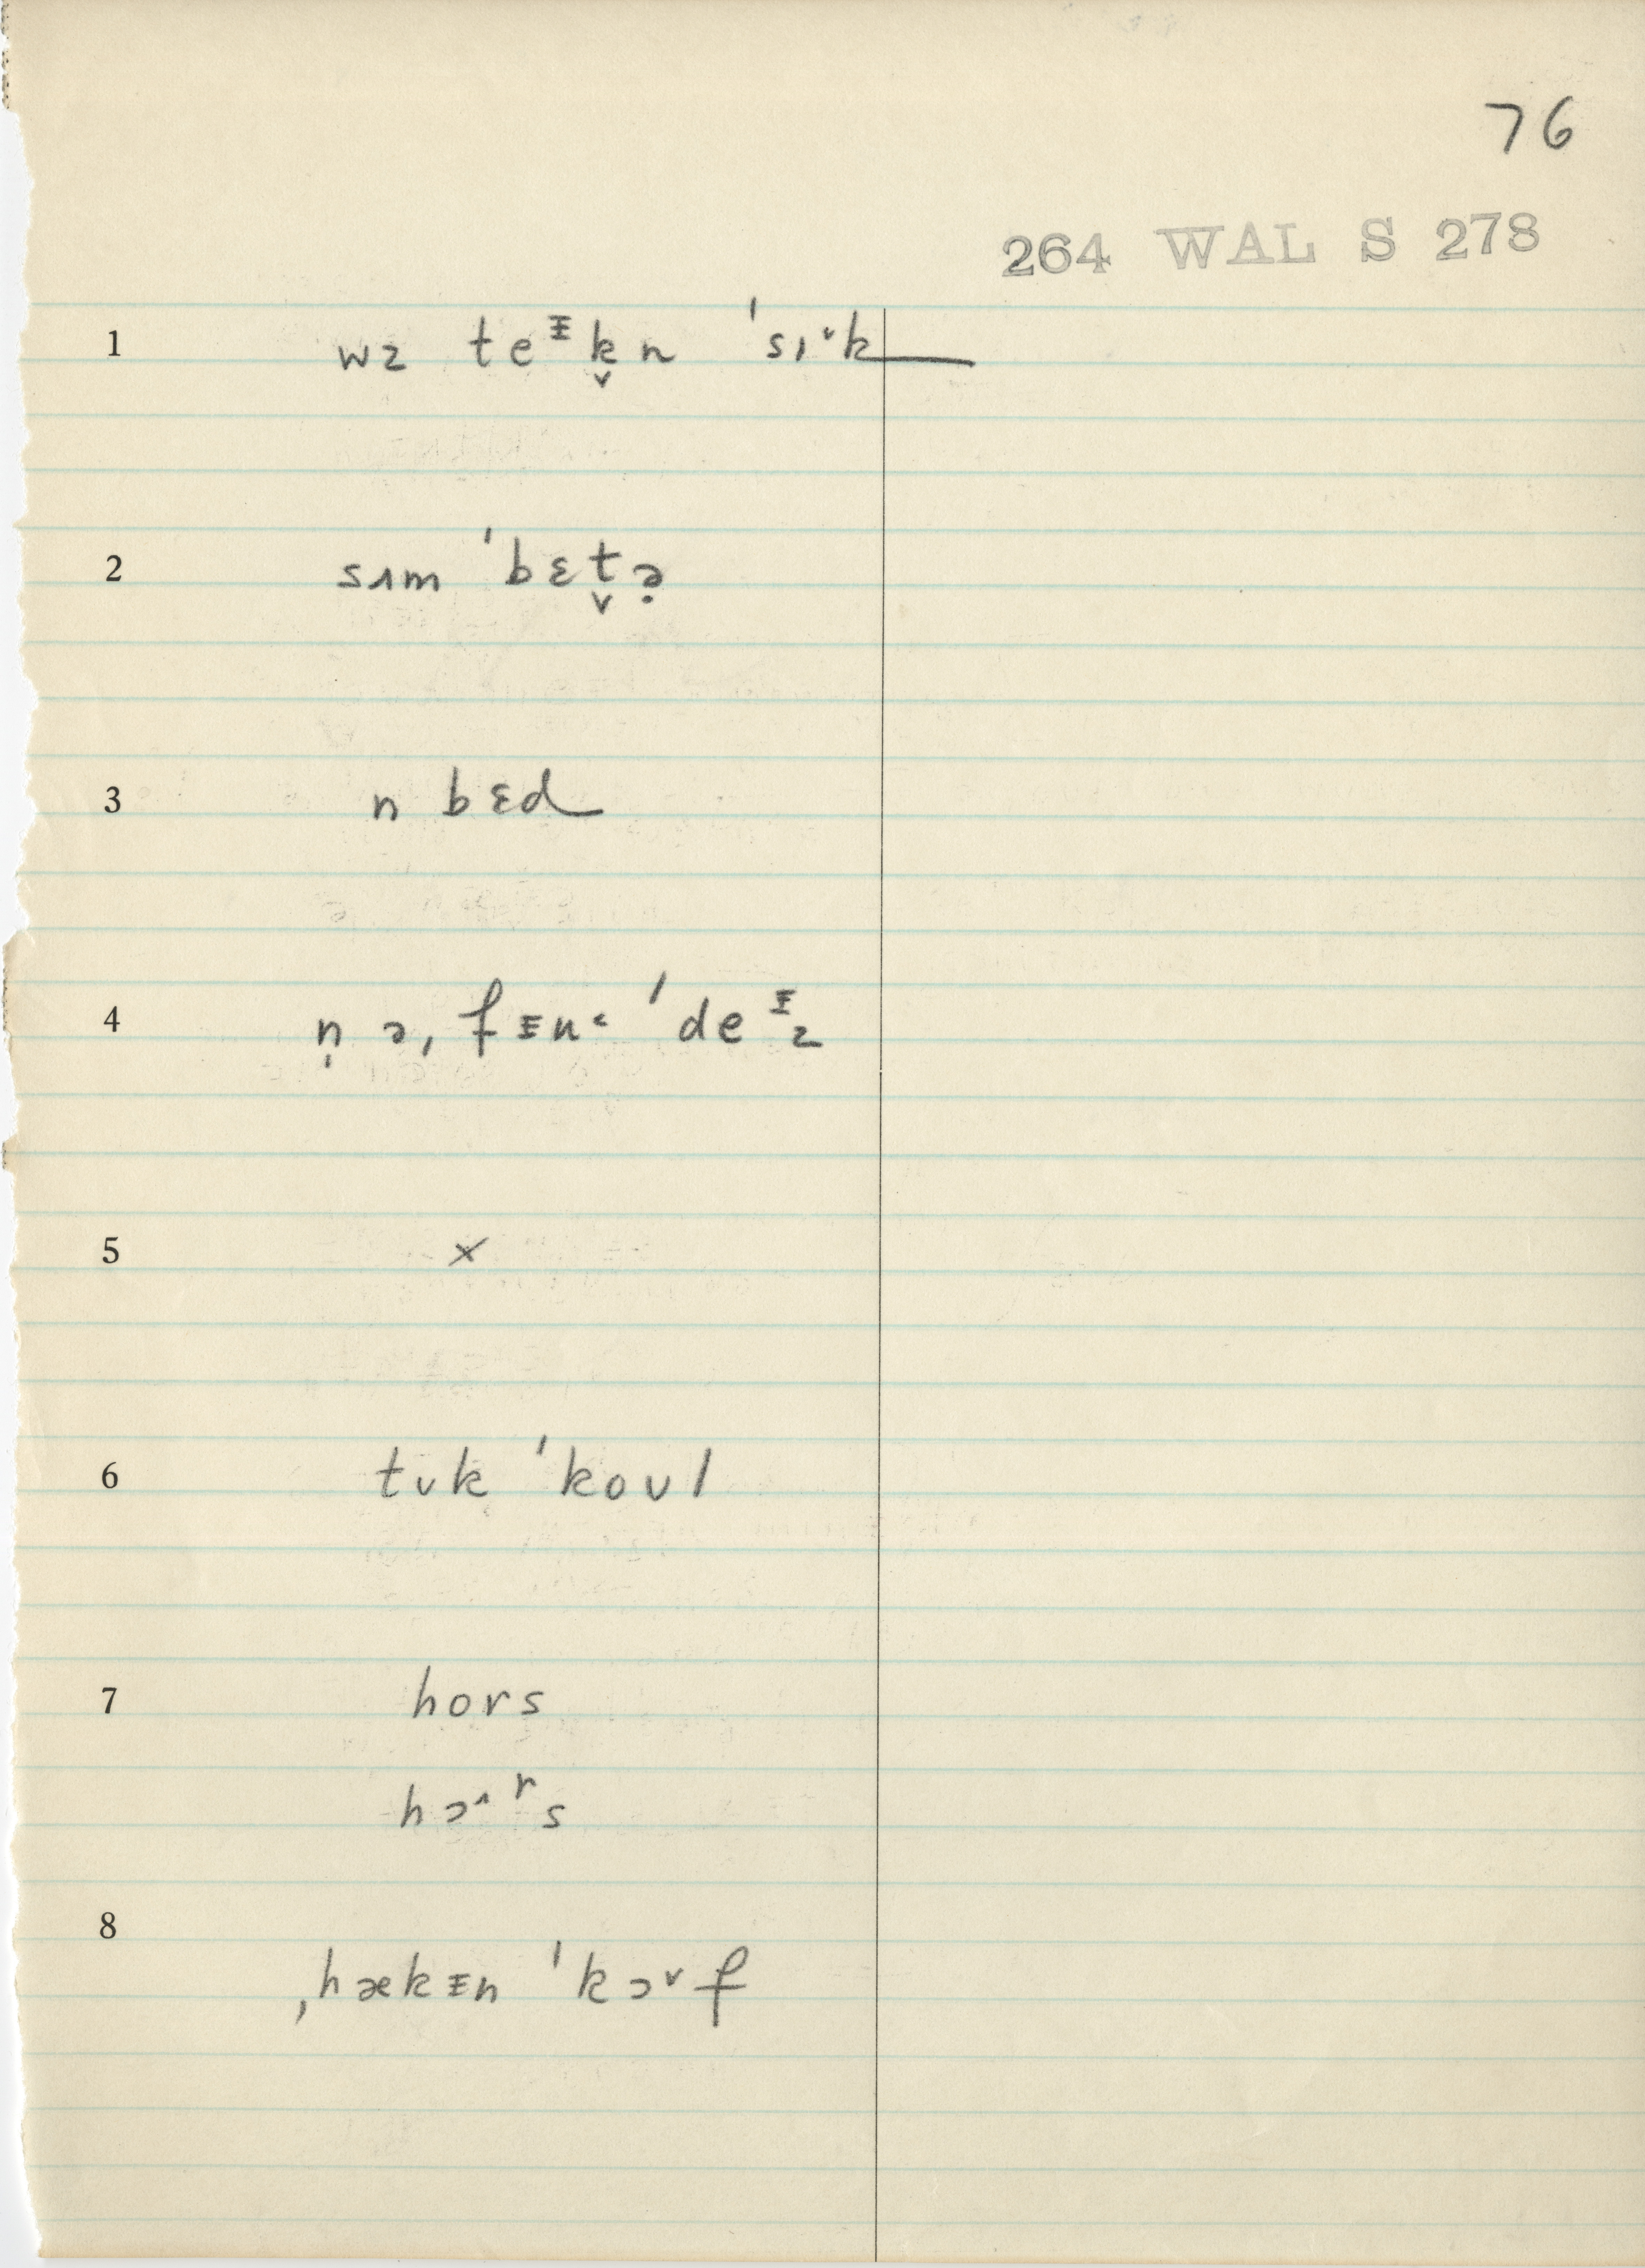 76
264 WAL S 278
1 wz teᵻk̬n ˈsɪ˞k
2 sʌm ˈbɛt̬ə̣
3 n bɛd
4 n̩ ə, fᵻn˂ ˈdeᵻz
5 ×
6 tʊk ˈkoʊl
7 hors
hɔ˄ʳs
8 ˌhækᵻn ˈkɔ˅f